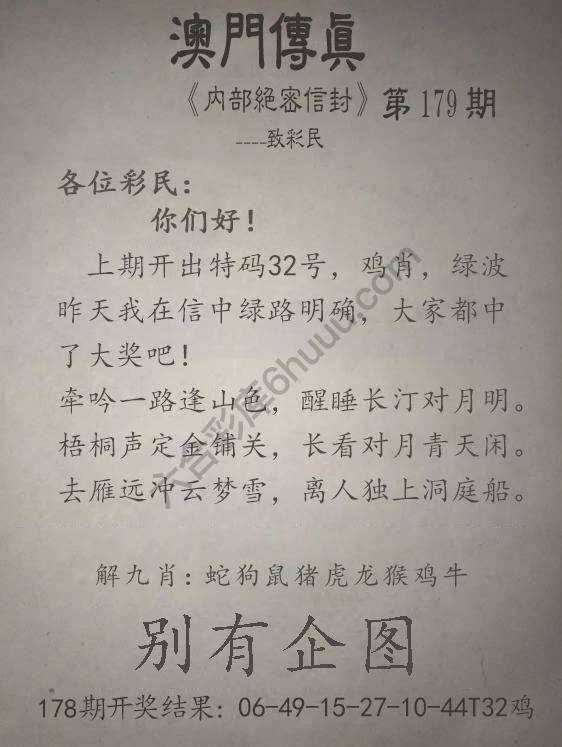 澳門傳真
《内部絕密信封》第179期
----致彩民
各位彩民：
你们好！
上期开出特码32号，鸡肖，绿波
昨天我在信中绿路明确，大家都中
了大奖吧！
牵吟一路逢山色，醒睡长汀对月明。
梧桐声定金铺关，长看对月青天闲。
去雁远冲云梦雪，离人独上洞庭船。
解九肖：蛇狗鼠猪虎龙猴鸡牛
别有企图
178期开奖结果：06-49-15-27-10-44T32鸡
六合彩库6huuu.com